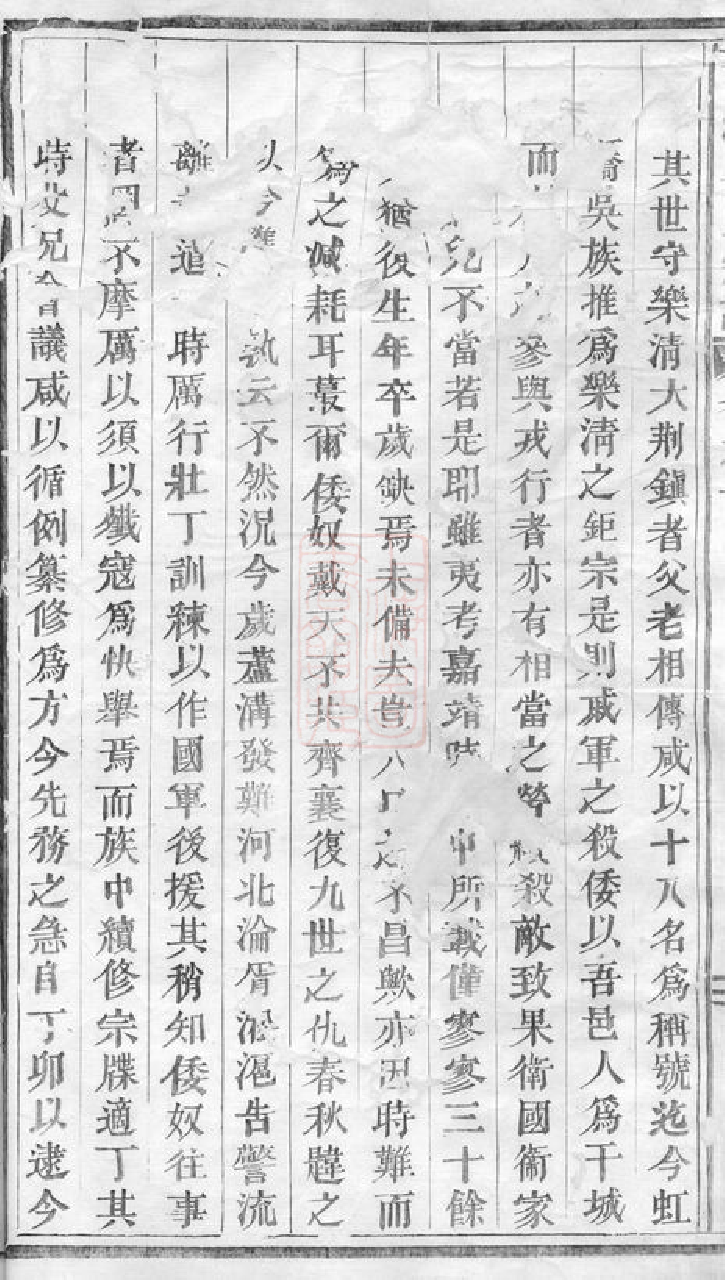 其世守樂清大荆鎮者父老相傳咸以十八名爲稱號迄今虹
橋吳族推爲樂清之鉅宗是則戚軍之殺倭以吾邑人爲干城
而參與戎行者亦有相當之勞績殺敵致果衛國衞家
不當若是耶雖夷考嘉靖時中所載僅寥寥三十餘
猶後生年卒歲缺焉未備夫豈不昌歟亦因時難而
爲之減耗耳蕞爾倭奴戴天不共齊襄復九世之仇春秋韙之
以今孰云不然況今歲蘆溝發難河北淪胥淞滬告警流
離時厲行壯丁訓練以作國軍後援其稍知倭奴往事
者罔不摩厲以須以殲寇爲快舉焉而族中續修宗牒適丁其
時父兄會議咸以循例纂修爲方今先務之急自丁卯以逮今